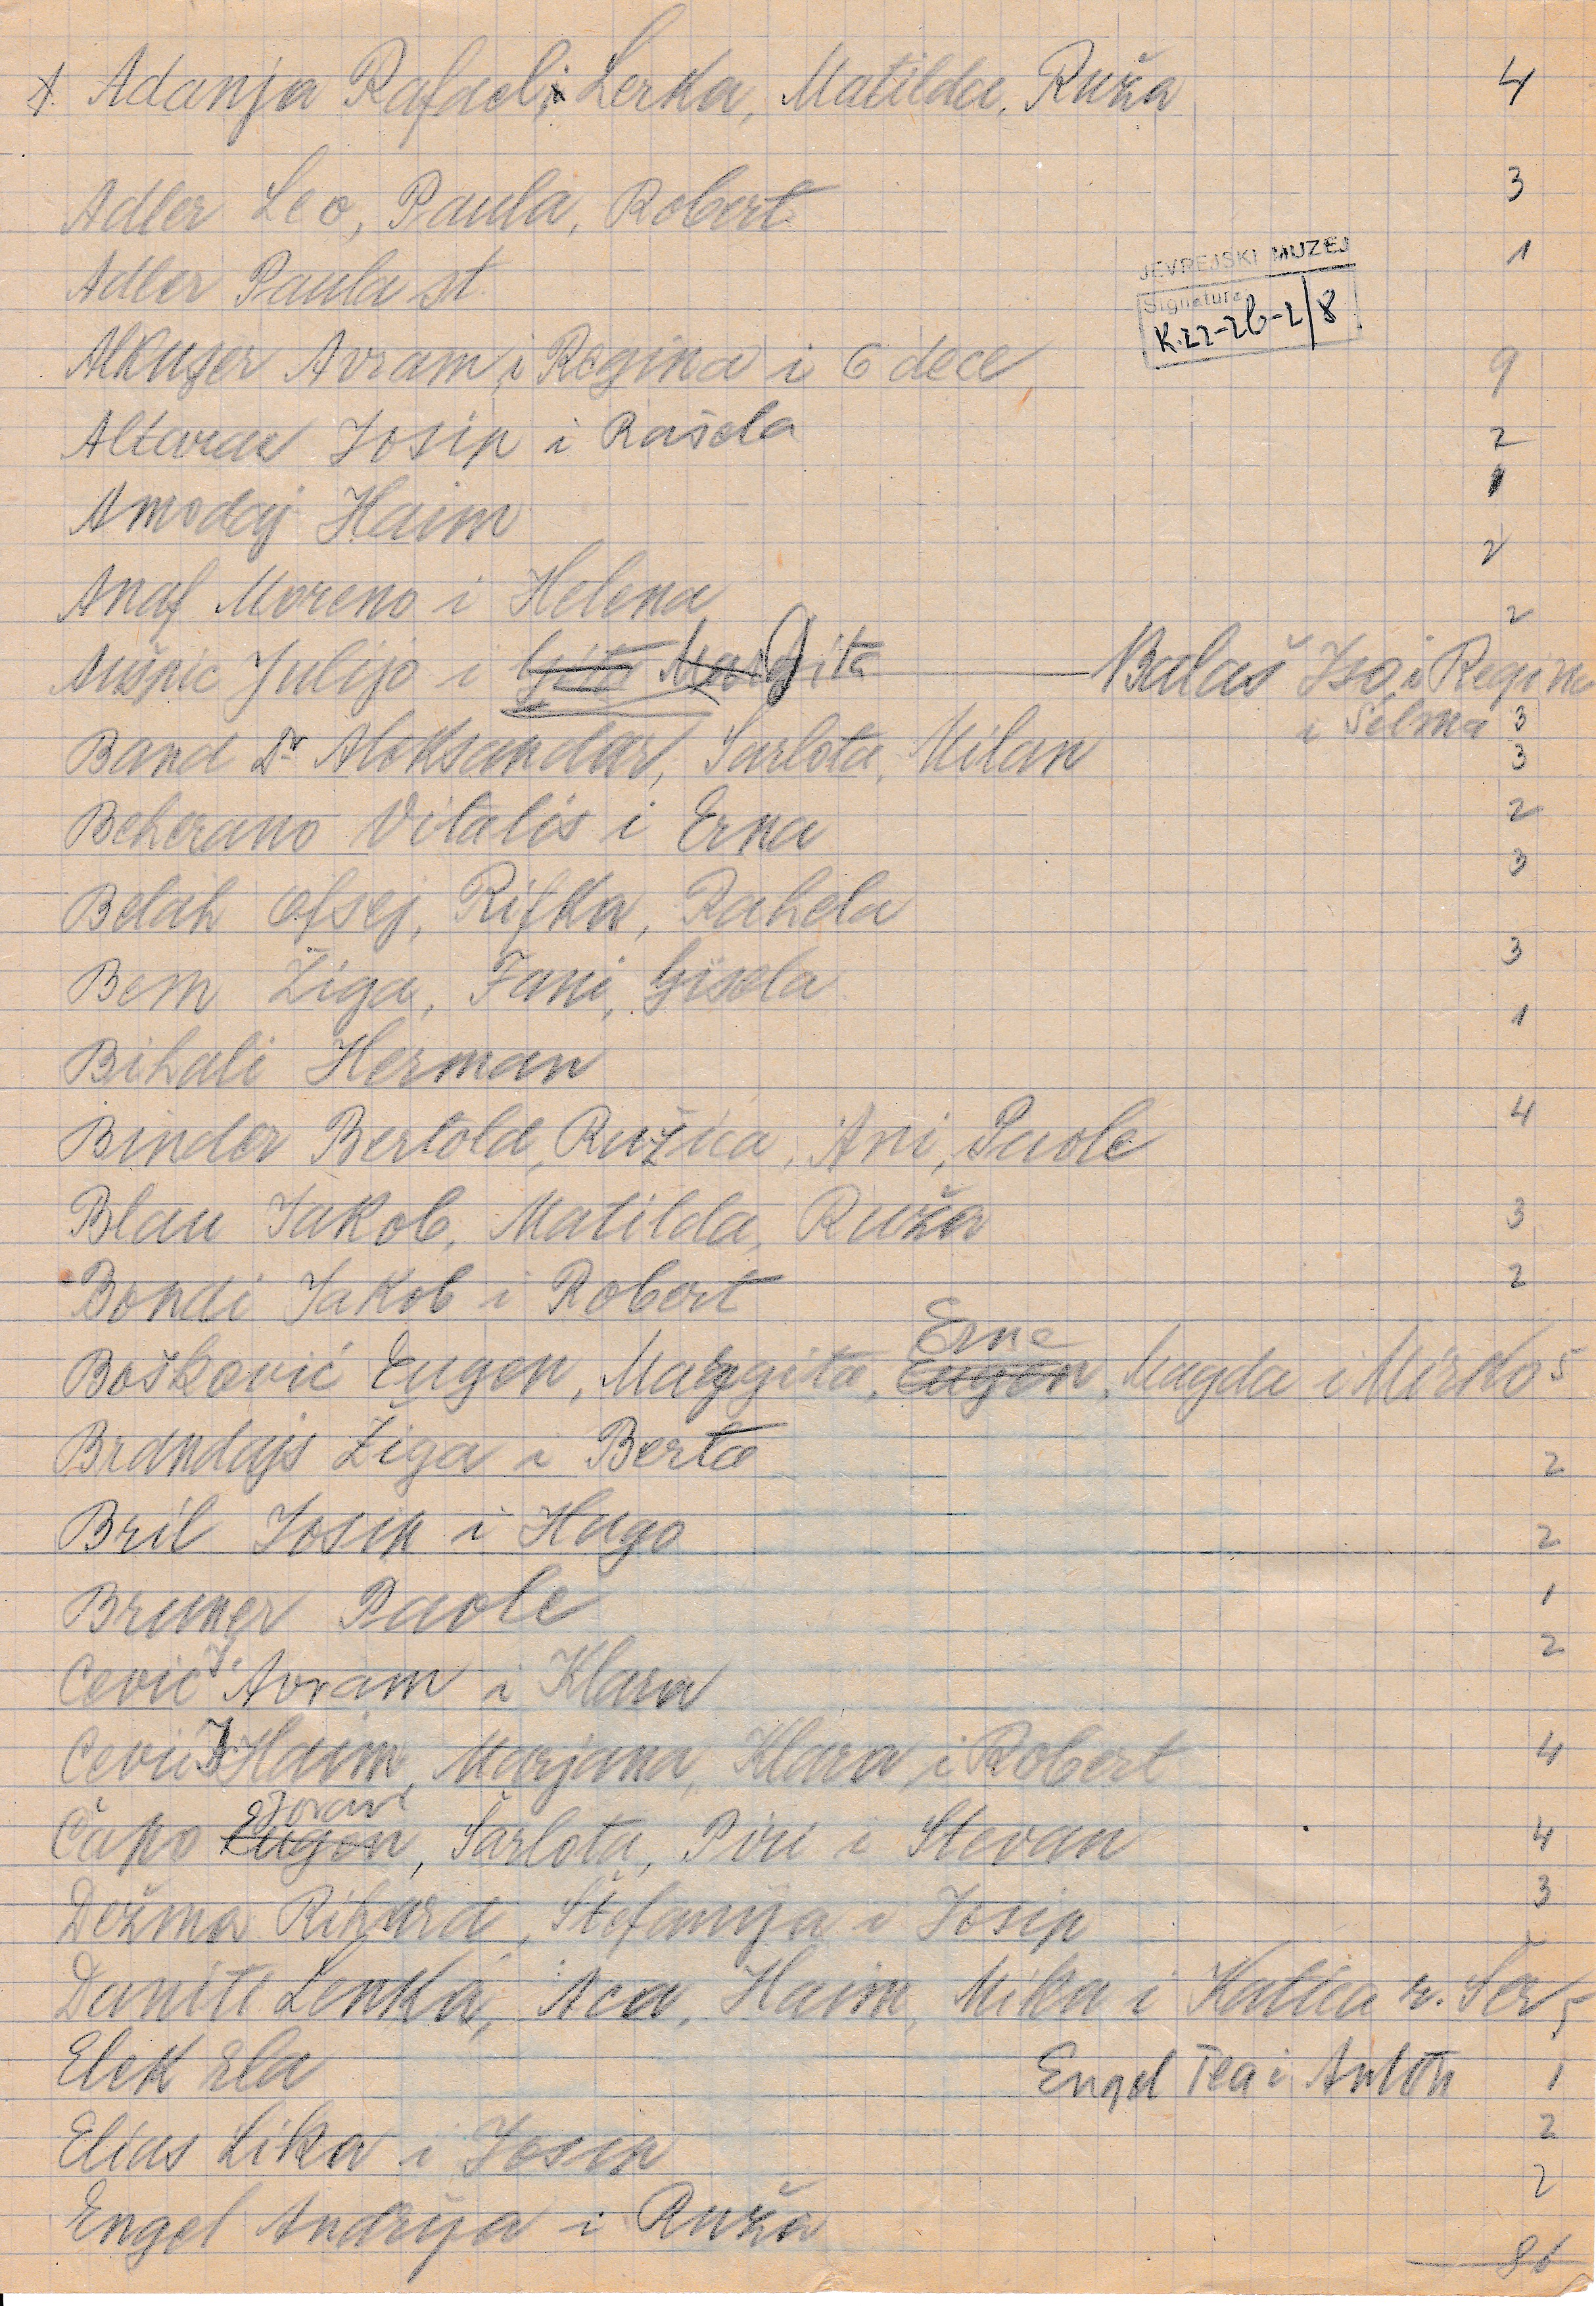 A. Adanja Rafael, Lerka, Matilda, Ruža 4
Adler Leo, Paula, Robert 3
Adler Paula st. 1
JEVREJSKI MUZEJ
Signatura
K.22-2b-2/8
Alkuser Avram, i Regina i 6 dece 9
Altarac Josip i Rašela 2
Amodaj Haim 1
Anaf Moreno i Helena 2
Aušpic Julijo i Gita Margita 2
Balaš Iso i Regina
i Selma 3
Band Dr Aleksandar, Šarlota, Milan 3
Beherano Vitalis i Erna 2
Belah Rifka, Rahela 3
Bem Žiga, Fani, Gisela 3
Bihali Herman 1
Binder Bertold, Ružica, Ani, Paole 4
Blau Jakob, Matilda, Ruža 3
Bondi Jakob i Robert 2
Erne
Bošković Eugen, Margita, Eugen, Magda i Mirko 5
Brandajs Žiga i Berta 2
Bril Josip i Hugo 2
Bruner Paole 1
Cević J. Avram i Klara 2
Cević J. Haim, Marjana, Klara i Robert 4
Zoran
Čapo Eugen, Šarlota, Piri i Stevan 4
Dežma Rihard, Štefanija i Josip 3
Daniti Lenka, Aca, Haim, Mika i Katica r. 5
Elek Ela 1
Engel Tea i Anton
Elias Lika i Josip 2
Engel Andrija i Ruža 2
86